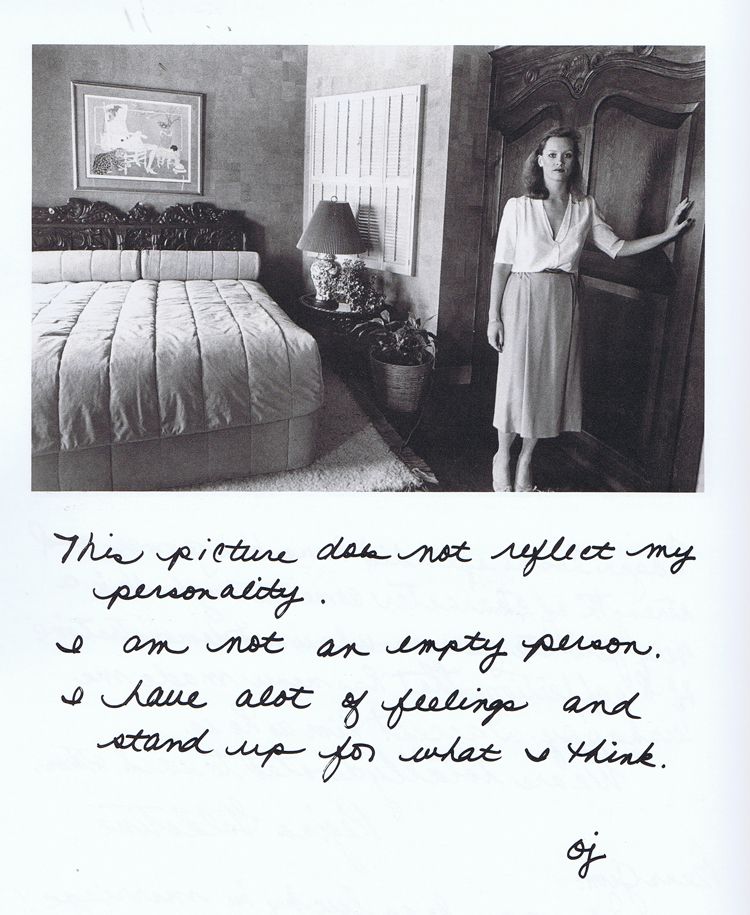 This picture does not reflect my
personality.
I am not an empty person.
I have alot of feelings and
stand up for what I think.
oj